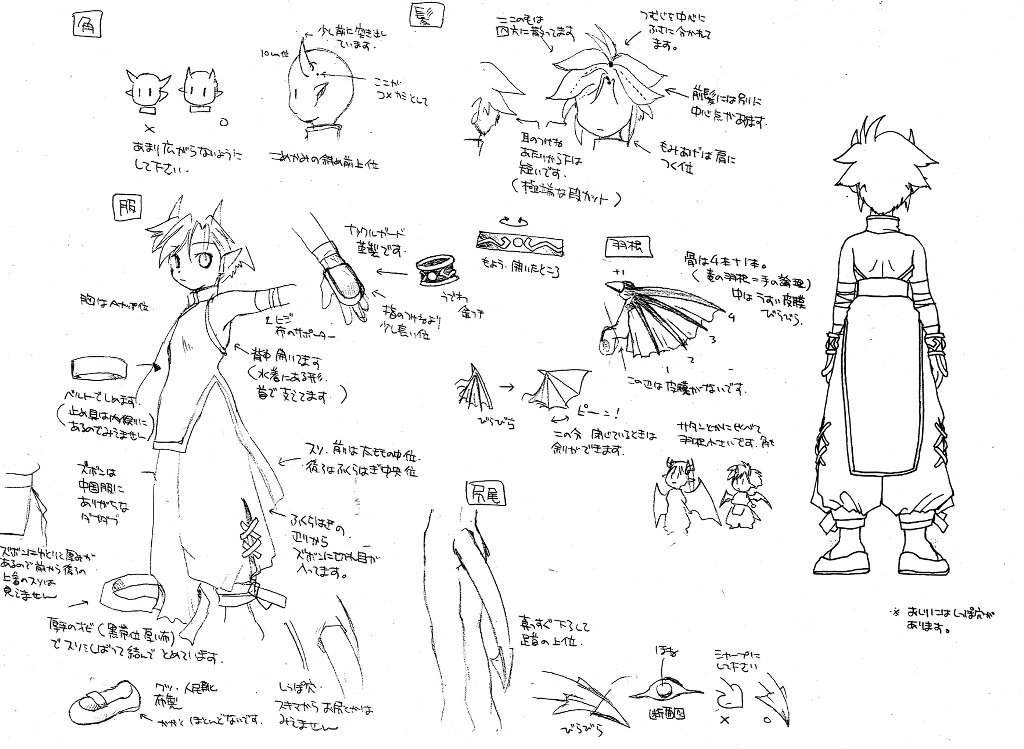 角
少し前に突き出し
ています.
10cm位
ここが
コメカミとして
×
○
あまり広がらないように
して下さい.
こめかみの斜め前上位
髪
ここの毛は
四方に散ってます
つむじを中心に
ふさに分かれて
ます。
前髪には別に
中心点があります.
もみあげは肩に
つく位
耳のつけね
あたりから下は
短いです.
(極端な段カット)
服
胸はAカップ位
ナックルガード
革製です.
ヒジ
布のサポーター
指のつけねより
少し長い位
うでわ
金つき
もよう.開いたところ
背中開いてます
(水着にある形.
首で支えてます.)
ベルトでしめます.
(止め具は内側に
あるのでみえません)
ズボンは
中国服に
ありがちな
ダブダブ
スソ.前は太ももの中位.
後ろはふくらはぎ中央位
ふくらはぎの
辺りから
ズボンに切れ目が
入ってます。
ズボンにゆとりと厚みが
あるので前から後ろの
上着のスソは
見えません
厚手のオビ(黒帯位厚い布)
でスソをしばって結んでとめています.
クツ.人民靴
布製
かかとほとんどないです.
しっぽ穴.
スキマからお尻とかは
みえません
羽根
骨は4本+1本。
(竜の羽根=手の論理)
中はうすい皮膜
びらびら.
+1
4
3
2
1
この辺は皮膜がないです.
びらびら
ピーン!
この分閉じているときは
余りができます.
サタンとかにくらべて
羽根小さいです.角も
尻尾
真っすぐ下ろして
足首の上位.
びらびら
ほね
断面図
シャープに
して下さい
×
○
※ おしりにはしっぽ穴が
あります。